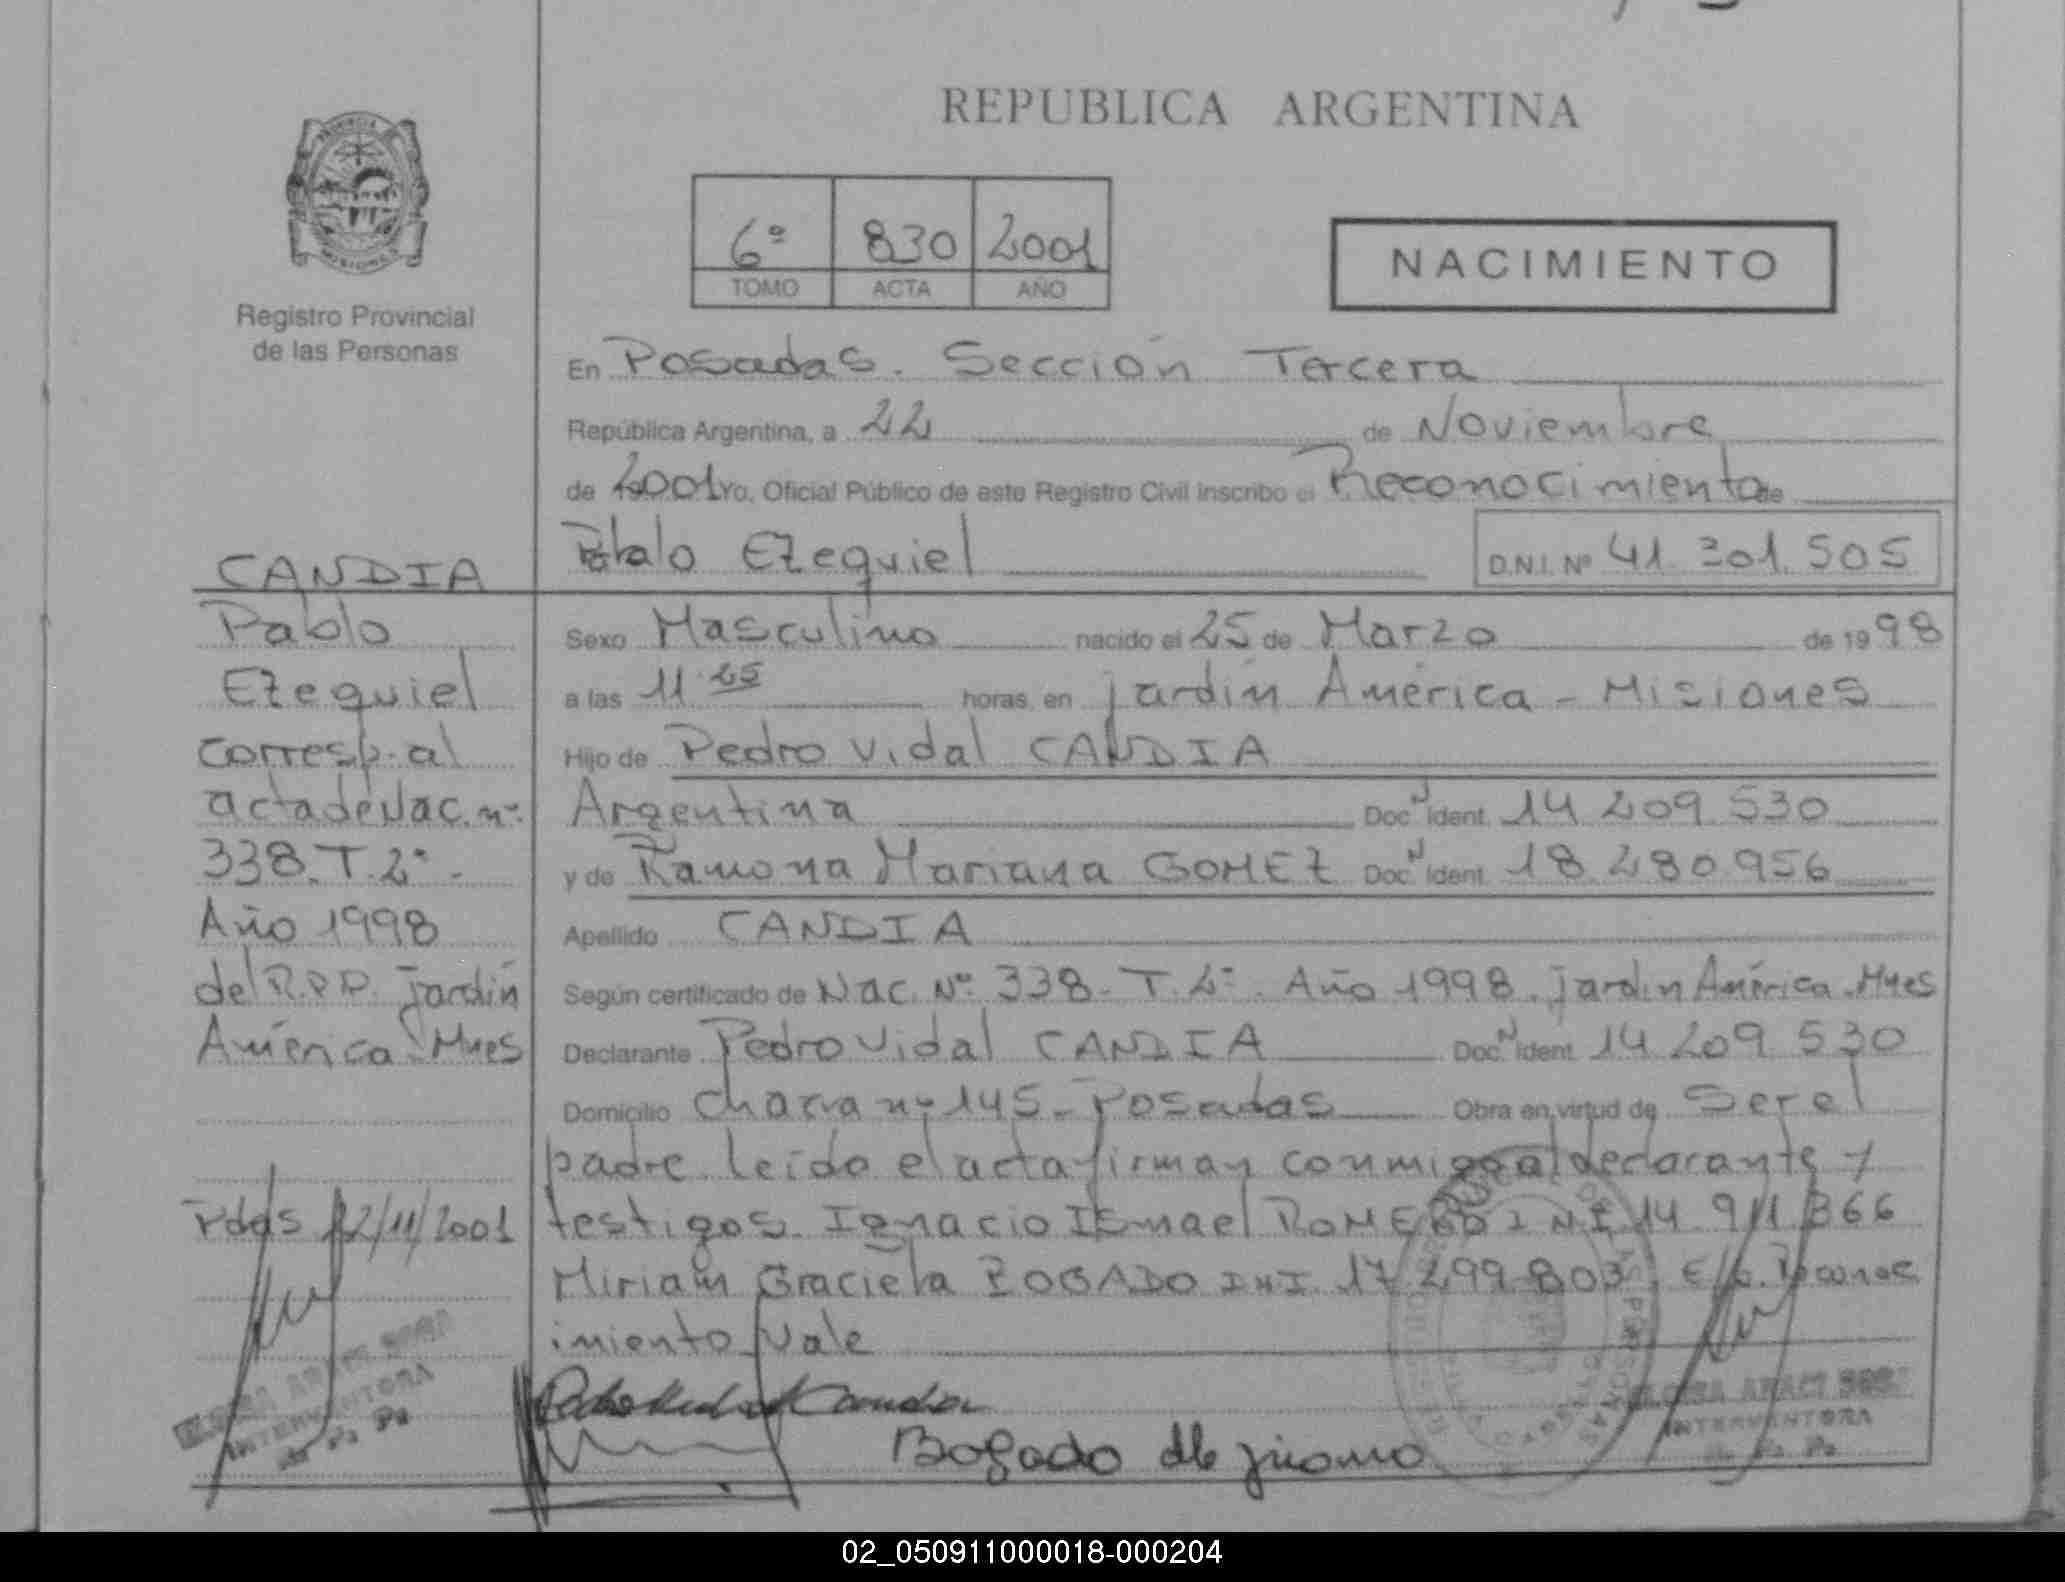 REPUBLICA ARGENTINA
PROVINCIA
MISIONES
Registro Provincial
de las Personas
6º 830 2001
TOMO ACTA AÑO
NACIMIENTO
En Posadas. Sección Tercera
República Argentina, a 22 de Noviembre
de 2001 Yo, Oficial Público de este Registro Civil inscribo el Reconocimiento de
Pablo Ezequiel D.N.I. Nº 41.301.505
CANDIA
Pablo
Ezequiel
corresp. al
acta de Nac. nº
338. T. 2º -
Año 1998
del R.P.P. Jardín
América. Mnes
Pdas 22/11/2001
Sexo Masculino nacido el 25 de Marzo de 1998
a las 11.25 horas, en Jardín América - Misiones
Hijo de Pedro Vidal CANDIA
Argentina Doc. N Ident. 14.209.530
y de Ramona Mariana GOMEZ Doc. N Ident. 18.280.956
Apellido CANDIA
Según certificado de Nac. Nº 338. T. 2º. Año 1998. Jardín América. Mnes
Declarante Pedro Vidal CANDIA Doc. N Ident. 14.209.530
Domicilio chacra nº 145 - Posadas Obra en virtud de Ser el
padre leída el acta firman conmigo al declarante y
testigos. Ignacio Ismael ROMERO D.N.I. 14.911.366
Miriam Graciela BOGADO D.N.I. 17.299.803. E/l. Reconoc
imiento. Vale
INTERVENTORA
Bogado
INTERVENTORA
02_050911000018-000204